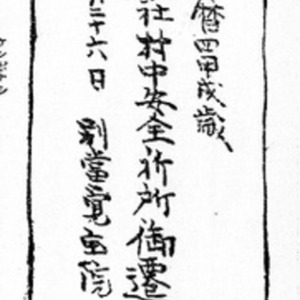 暦四甲戌歳
社村中安全祈所御遷
二十六日 別當寛宝院